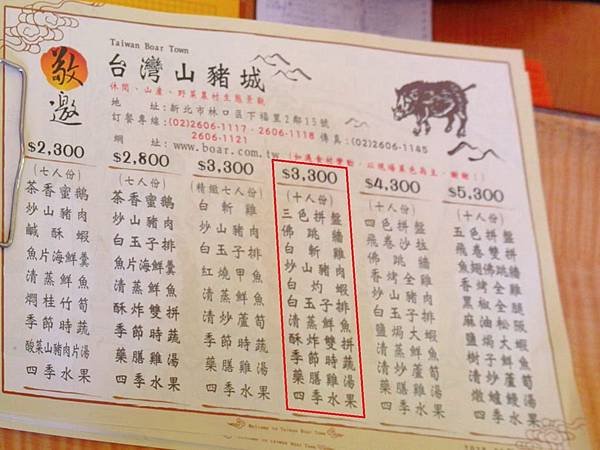 敬邀
Taiwan Boar Town
台灣山豬城
休閒、山產、野菜農村生態景觀
地 址:新北市林口區下福里2鄰15號
訂餐專線:(02)2606-1117、2606-1118 傳真:(02)2606-1185
2606-1121
網 址:www.boar.com.tw (如遇食材變動,以現場菜色為主,謝謝!)
$2,300
(七人份)
茶香蜜鵝
炒山豬肉
鹹酥蝦
魚片海鮮羹
清蒸鮮魚
燜桂竹筍
季節時蔬
酸菜山豬肉片湯
四季水果
$2,800
(七人份)
茶香蜜鵝
炒山豬肉
白玉子排
魚片海鮮羹
清蒸鮮魚
酥炸雙拼
季節時蔬
藥膳雞湯
四季水果
$3,300
(精緻七人份)
白斬雞
炒山豬肉
白灼蝦
紅燒甲魚
清蒸鮮魚
清炒蘆筍
季節時蔬
藥膳雞湯
四季水果
$3,300
(十人份)
三色拼盤
佛跳牆
白斬雞
炒山豬肉
白灼蝦
白玉子排
清蒸鮮魚
酥炸雙拼
季節時蔬
藥膳雞湯
四季水果
$4,300
(十人份)
四色拼盤
飛卷沙拉
佛跳牆
香烤全雞
炒山豬肉
白玉子排
鹽焗大蝦
清蒸鮮魚
清炒蘆筍
藥膳雞湯
四季水果
$5,300
(十人份)
五色拼盤
飛卷雙蝦
魚翅佛跳牆
香烤全雞
黑椒子腿
麻油大蝦
鹽焗鮮魚
樹子蒸
清炒蘆筍
燉鱸鰻湯
四季水果
Welcome to Taiwan Boar Town